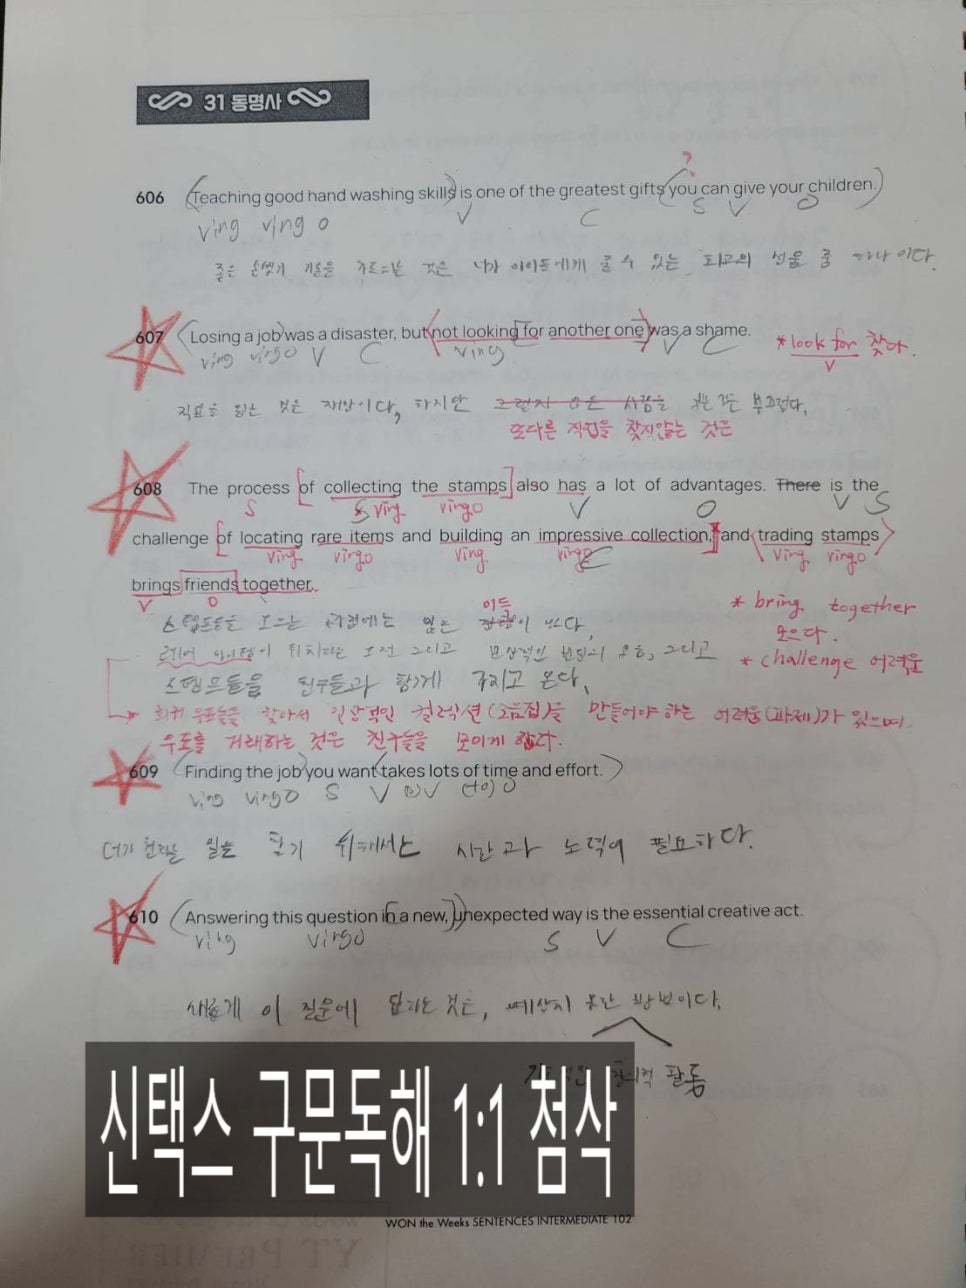 31 동명사
?
606 (Teaching good hand washing skills) is one of the greatest gifts (you can give your children.)
ving ving o V C S V O
좋은 손씻기 기술을 가르치는 것은 너가 아이들에게 줄 수 있는 최고의 선물 중 하나이다.
607 (Losing a job) was a disaster, but (not looking for another one) was a shame.
ving vingo V C ving V C
* look for 찾다.
V
직업을 잃는 것은 재앙이다, 하지만 부끄럽다.
또다른 직업을 찾지않는 것은
608 The process [of collecting the stamps] also has a lot of advantages. There is the
S S ving vingo V O V S
challenge [of locating rare items and building an impressive collection,] and (trading stamps)
ving vingo ving vingo C ving vingo
brings friends together.
V O
이득
* bring together
모으다.
스탬프들을 모으는 과정에는 많은 이 있다,
그리고 그리고
* challenge 어려움
스탬프들을 친구들과 함께 가지고 온다.
희귀 우표들을 찾아서 인상적인 컬렉션(모음집)을 만들어야 하는 어려움(과제)가 있으며
우표를 거래하는 것은 친구들을 모이게 한다.
609 (Finding the job) you want (takes lots of time and effort.)
ving vingo S V V O
너가 원하는 일을 찾기 위해서는 시간과 노력이 필요하다.
610 (Answering this question in a new, unexpected way is the essential creative act.
ving vingo S V C
새롭게 이 질문에 답하는 것은, 예상치 못한 방법이다.
활동
신택스 구문독해 1:1 첨삭
WON the Weeks SENTENCES INTERMEDIATE 102